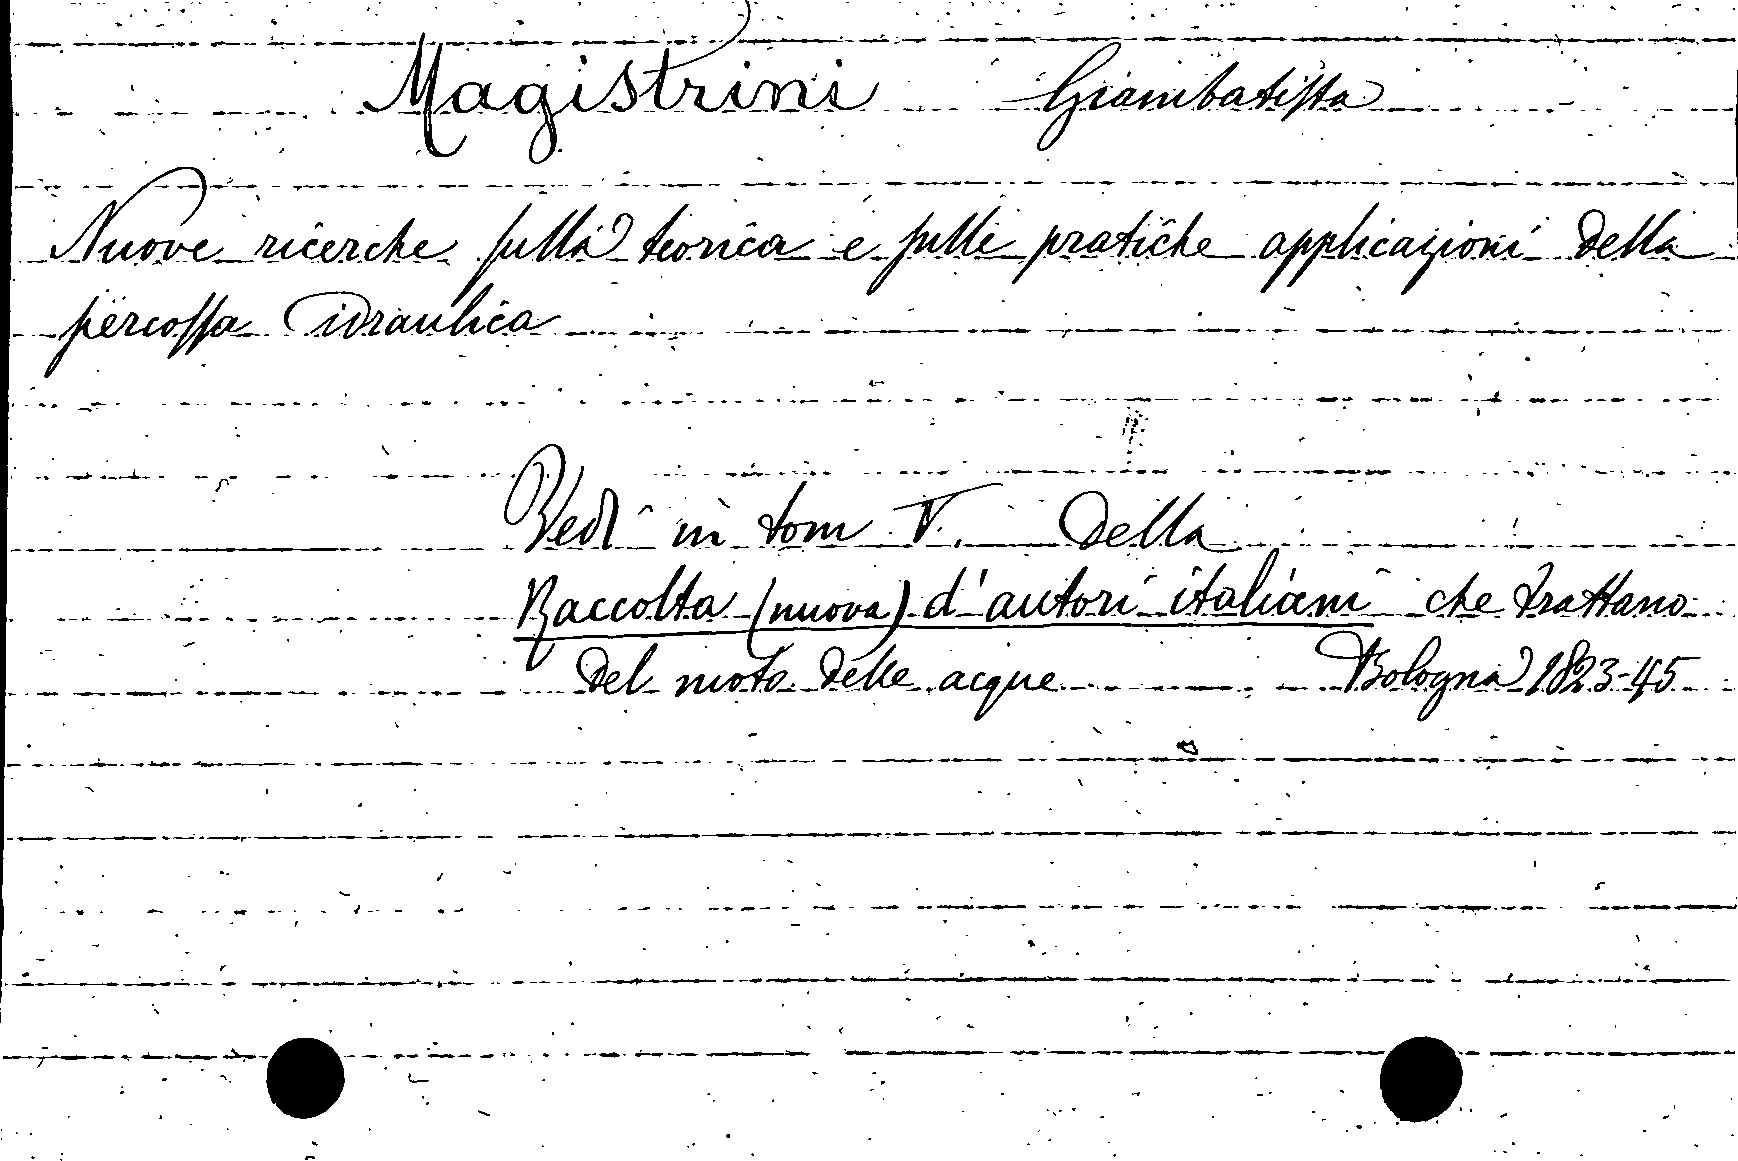 Magistrini Giambatista
Nuove ricerche sulla teorica e sulle pratiche applicazioni della
percossa idraulica
Vedi in tom V. della
Raccolta (nuova) d'autori italiani che trattano
del moto delle acque Bologna 1823-45